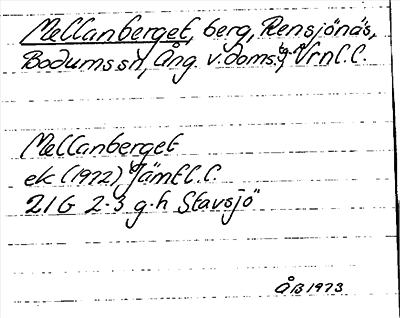 Mellanberget, berg, Rensjönäs,
Bodums sn, Ång. v. doms. g. Vrnl. L.
Mellanberget
ek (1972) Jämtl. L.
21G 2-3 g-h Stavsjö
ÅB 1973